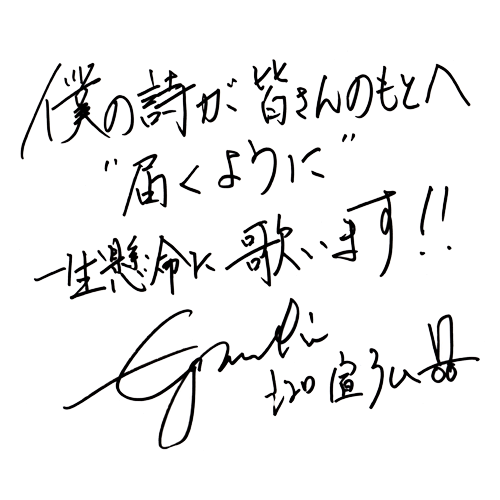 僕の詩が皆さんのもとへ
"届くように"
一生懸命に歌います!!